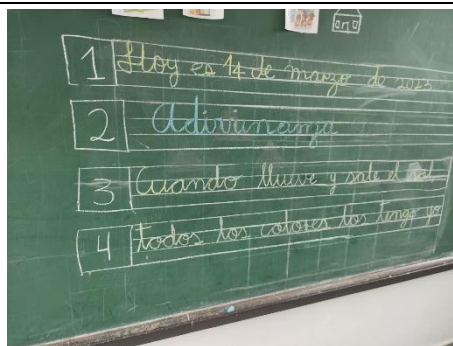 1 Hoy es 14 de marzo de 2023
2 Adivinanza
3 Cuando llueve y sale el sol
4 todos los colores los tengo yo